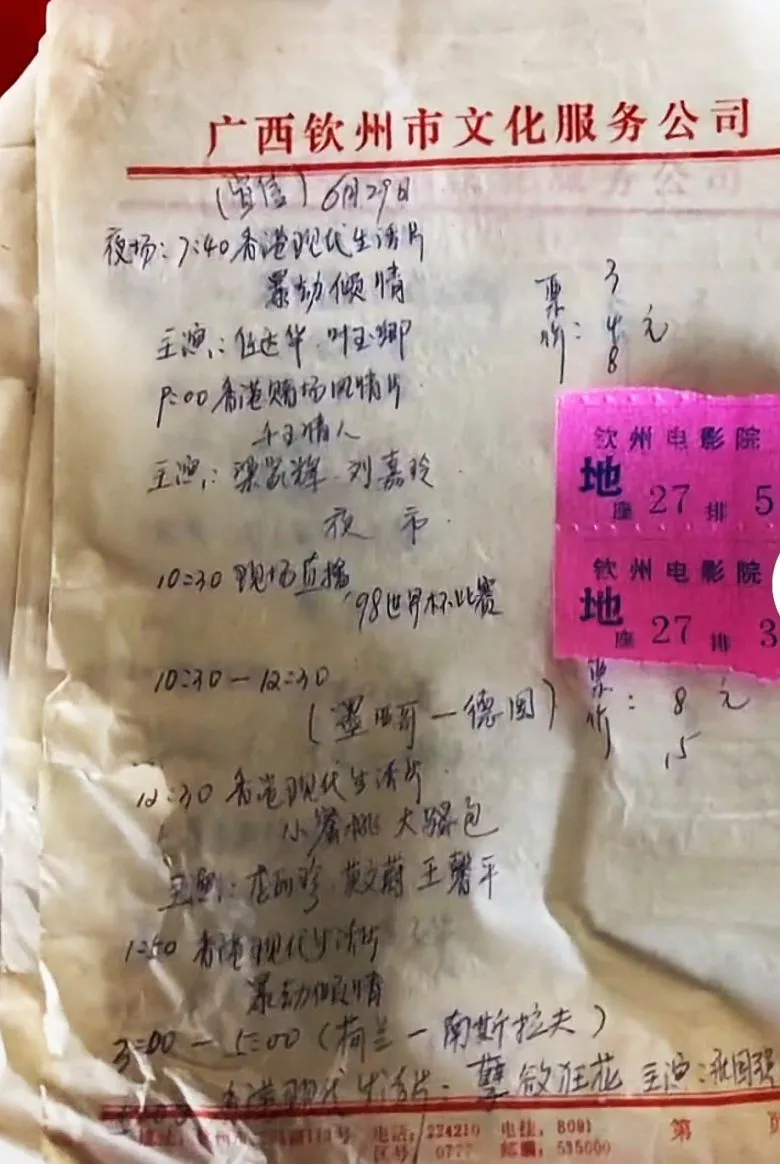 广西钦州市文化服务公司
6月29日
夜场:7:40香港现代生活片
暴劫倾情
主演:任达华 叶玉卿
票价:3 4 8 元
9:00香港赌场风情片
千王情人
主演:梁家辉 刘嘉玲
夜市
钦州电影院
地座 27 排 5
钦州电影院
地座 27 排 3
10:30 现场直播
'98世界杯比赛
10:30—12:30
(墨西哥—德国)
票价:8 15 元
12:30 香港现代生活片
小蜜桃 大路包
主演: 莫文蔚 王馨平
1:50 香港现代生活片
暴劫倾情
3:00—5:00(荷兰—南斯拉夫)
香港现代生活片:孽欲狂花 主演:
电话:224210 电挂:8091 第 页
区号 0777 邮编:535000